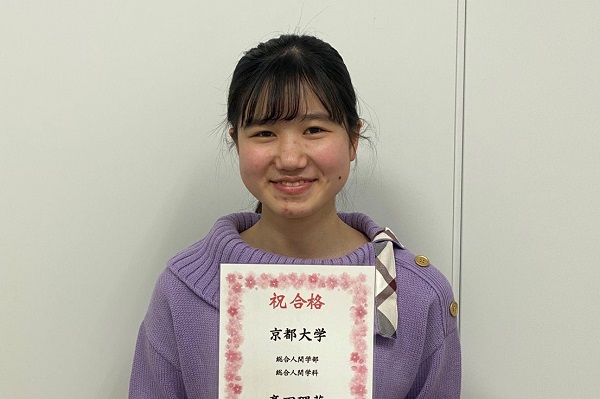 祝合格
京都大学
総合人間学部
総合人間学科